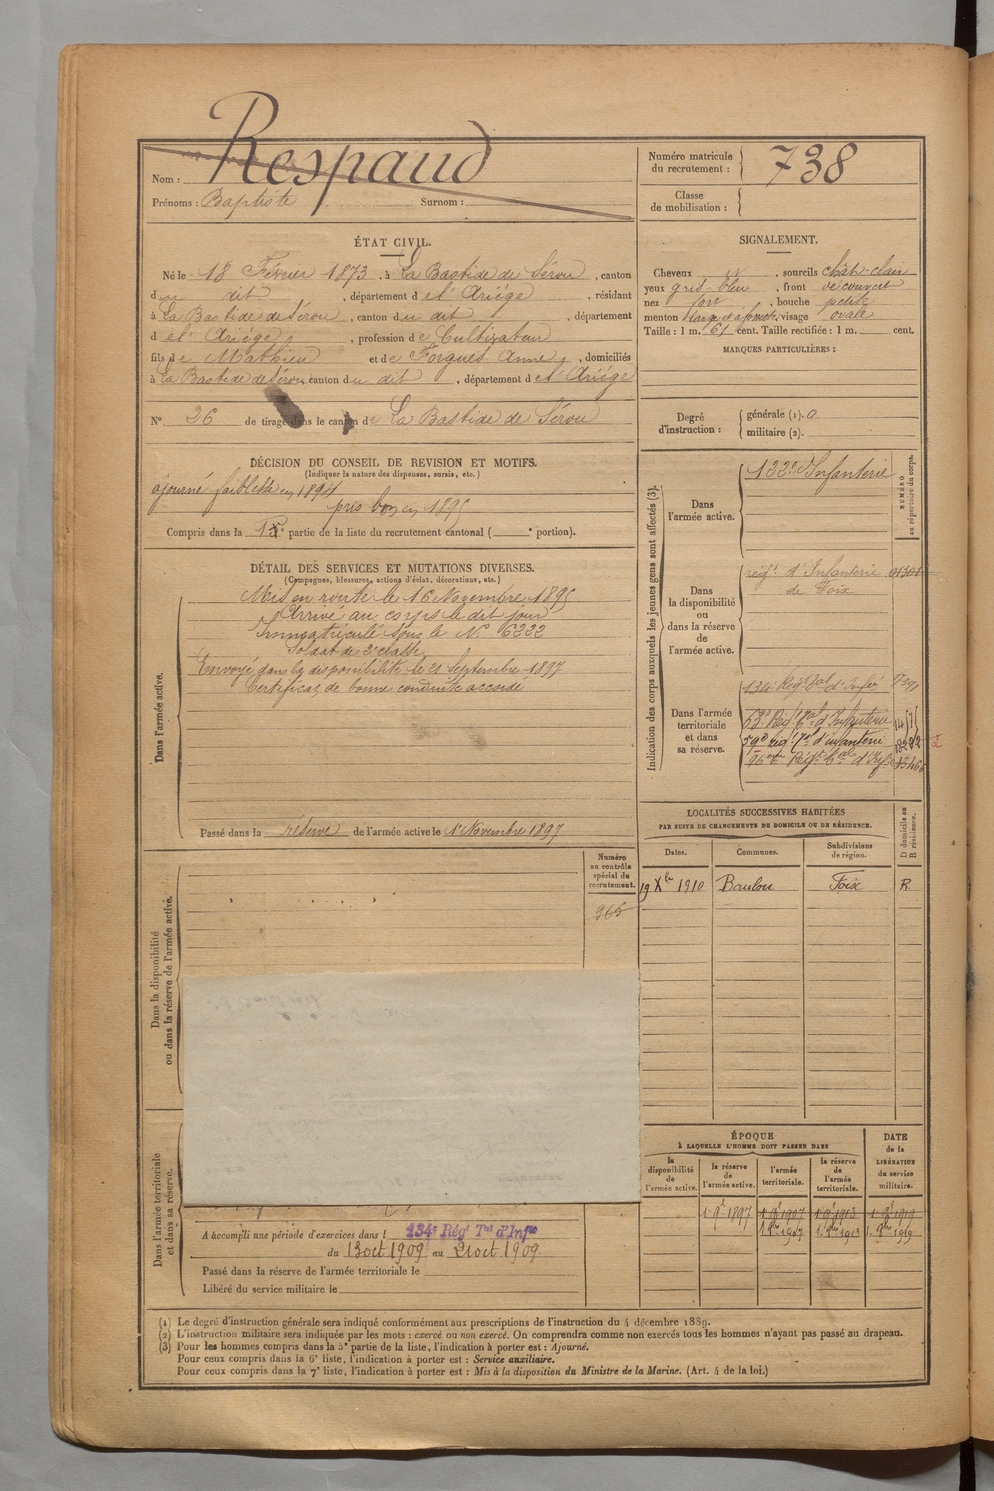 Nom : Respaud
Prénoms : Baptiste Surnom :
Numéro matricule du recrutement : 738
Classe de mobilisation :
ÉTAT CIVIL.
Né le 18 Février 1873, à La Bastide de Sérou, canton
du dit, département de l'Ariége, résidant
à La Bastide de Sérou, canton du dit, département
de l'Ariége, profession de Cultivateur
fils de Mathieu et de Forgues Anne, domiciliés
à La Bastide de Sérou, canton du dit, département de l'Ariége
N° 26 de tirage dans le canton de La Bastide de Sérou
SIGNALEMENT.
Cheveux, sourcils chât-clair
yeux gris-bleu, front découvert
nez fort, bouche petite
menton, visage ovale
Taille : 1 m. 61 cent. Taille rectifiée : 1 m. cent.
MARQUES PARTICULIÈRES :
Degré d'instruction :
générale (1). 0
militaire (2).
DÉCISION DU CONSEIL DE REVISION ET MOTIFS.
(Indiquer la nature des dispenses, sursis, etc.)
ajourné faiblesse en 1894
pris bon en 1895
Compris dans la partie de la liste du recrutement cantonal ( e portion).
DÉTAIL DES SERVICES ET MUTATIONS DIVERSES.
(Campagnes, blessures, actions d'éclat, décorations, etc.)
Dans l'armée active.
Mis en route le 16 Novembre 1895
Arrivé au corps le dit jour
Immatriculé sous le N° 6222
Soldat de 2e classe
Envoyé dans la disponibilité le 21 Septembre 1897
Certificat de bonne conduite accordé
Passé dans la réserve de l'armée active le 1er Novembre 1897
Indication des corps auxquels les jeunes gens sont affectés (3).
NUMÉRO au répertoire du corps.
Dans l'armée active.
122e Infanterie
Dans la disponibilité ou dans la réserve de l'armée active.
rég.t d'Infanterie
de Foix
Dans l'armée territoriale et dans sa réserve.
134e Rég.t Tal d'Inf.ie
Rég.t Tal d'Infanterie
59e rég.t Tal d'infanterie
96eme Rég.t Tal d'Inf.
LOCALITÉS SUCCESSIVES HABITÉES
PAR SUITE DE CHANGEMENTS DE DOMICILE OU DE RÉSIDENCE.
Dates. Communes. Subdivisions de région. D domicile ou R résidence.
19 Xbre 1910 Baulou Foix R.
Dans la disponibilité ou dans la réserve de l'armée active.
Numéro au contrôle spécial du recrutement.
965
Dans l'armée territoriale et dans sa réserve.
A accompli une période d'exercices dans l 134e Régt Tal d'Infie
du 13 oct 1909 au 21 oct 1909
Passé dans la réserve de l'armée territoriale le
Libéré du service militaire le
ÉPOQUE
À LAQUELLE L'HOMME DOIT PASSER DANS
la disponibilité de l'armée active.
la réserve de l'armée active.
l'armée territoriale.
la réserve de l'armée territoriale.
DATE de la LIBÉRATION du service militaire.
(1) Le degré d'instruction générale sera indiqué conformément aux prescriptions de l'instruction du 4 décembre 1889.
(2) L'instruction militaire sera indiquée par les mots : exercé ou non exercé. On comprendra comme non exercés tous les hommes n'ayant pas passé au drapeau.
(3) Pour les hommes compris dans la 5e partie de la liste, l'indication à porter est : Ajourné.
Pour ceux compris dans la 6e liste, l'indication à porter est : Service auxiliaire.
Pour ceux compris dans la 7e liste, l'indication à porter est : Mis à la disposition du Ministre de la Marine. (Art. 4 de la loi.)